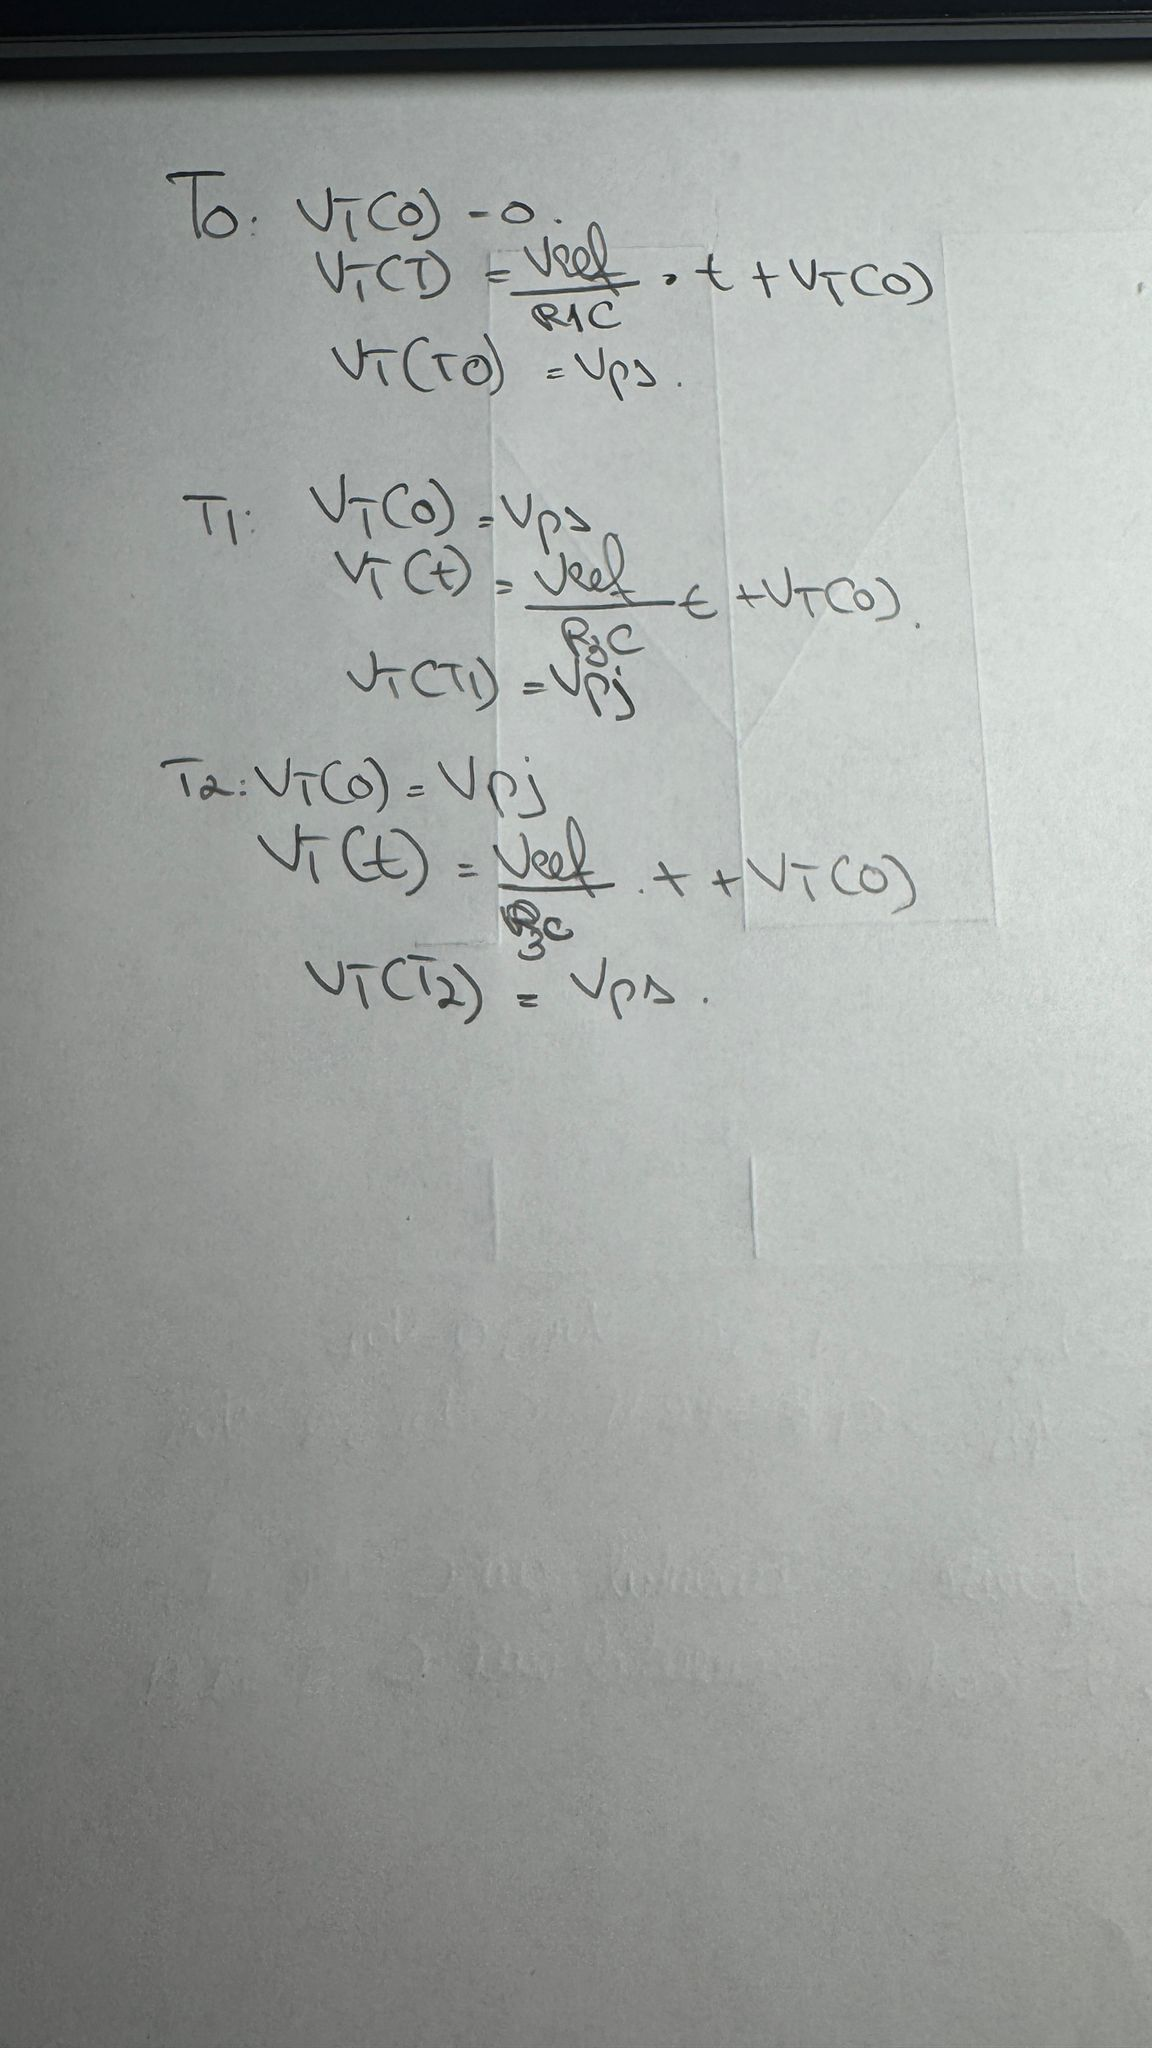 T0: VT(0) - 0.
VT(T) = Vref/R1C . t + VT(0)
VT(T0) = Vps.
T1: VT(0) = Vps
VT(t) = Vref/R3C t + VT(0).
VT(T1) = Vpj
T2: VT(0) = Vpj
VT(t) = Vref/R3C . t + VT(0)
VT(T2) = Vps.